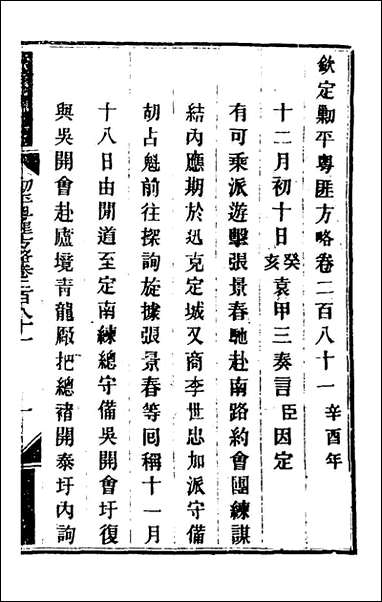 欽定勦平粵匪方略卷二百八十一 辛酉年
十二月初十日癸亥袁甲三奏言臣因定
有可乘派遊擊張景春馳赴南路約會團練謀
結內應期於迅克定城又商李世忠加派守備
胡占魁前往探詢旋據張景春等囘稱十一月
十八日由閒道至定南練總守備吳開會圩復
與吳開會赴廬境青龍廠把總褚開泰圩內詢
勦平粵匪方略卷二百八十一
一